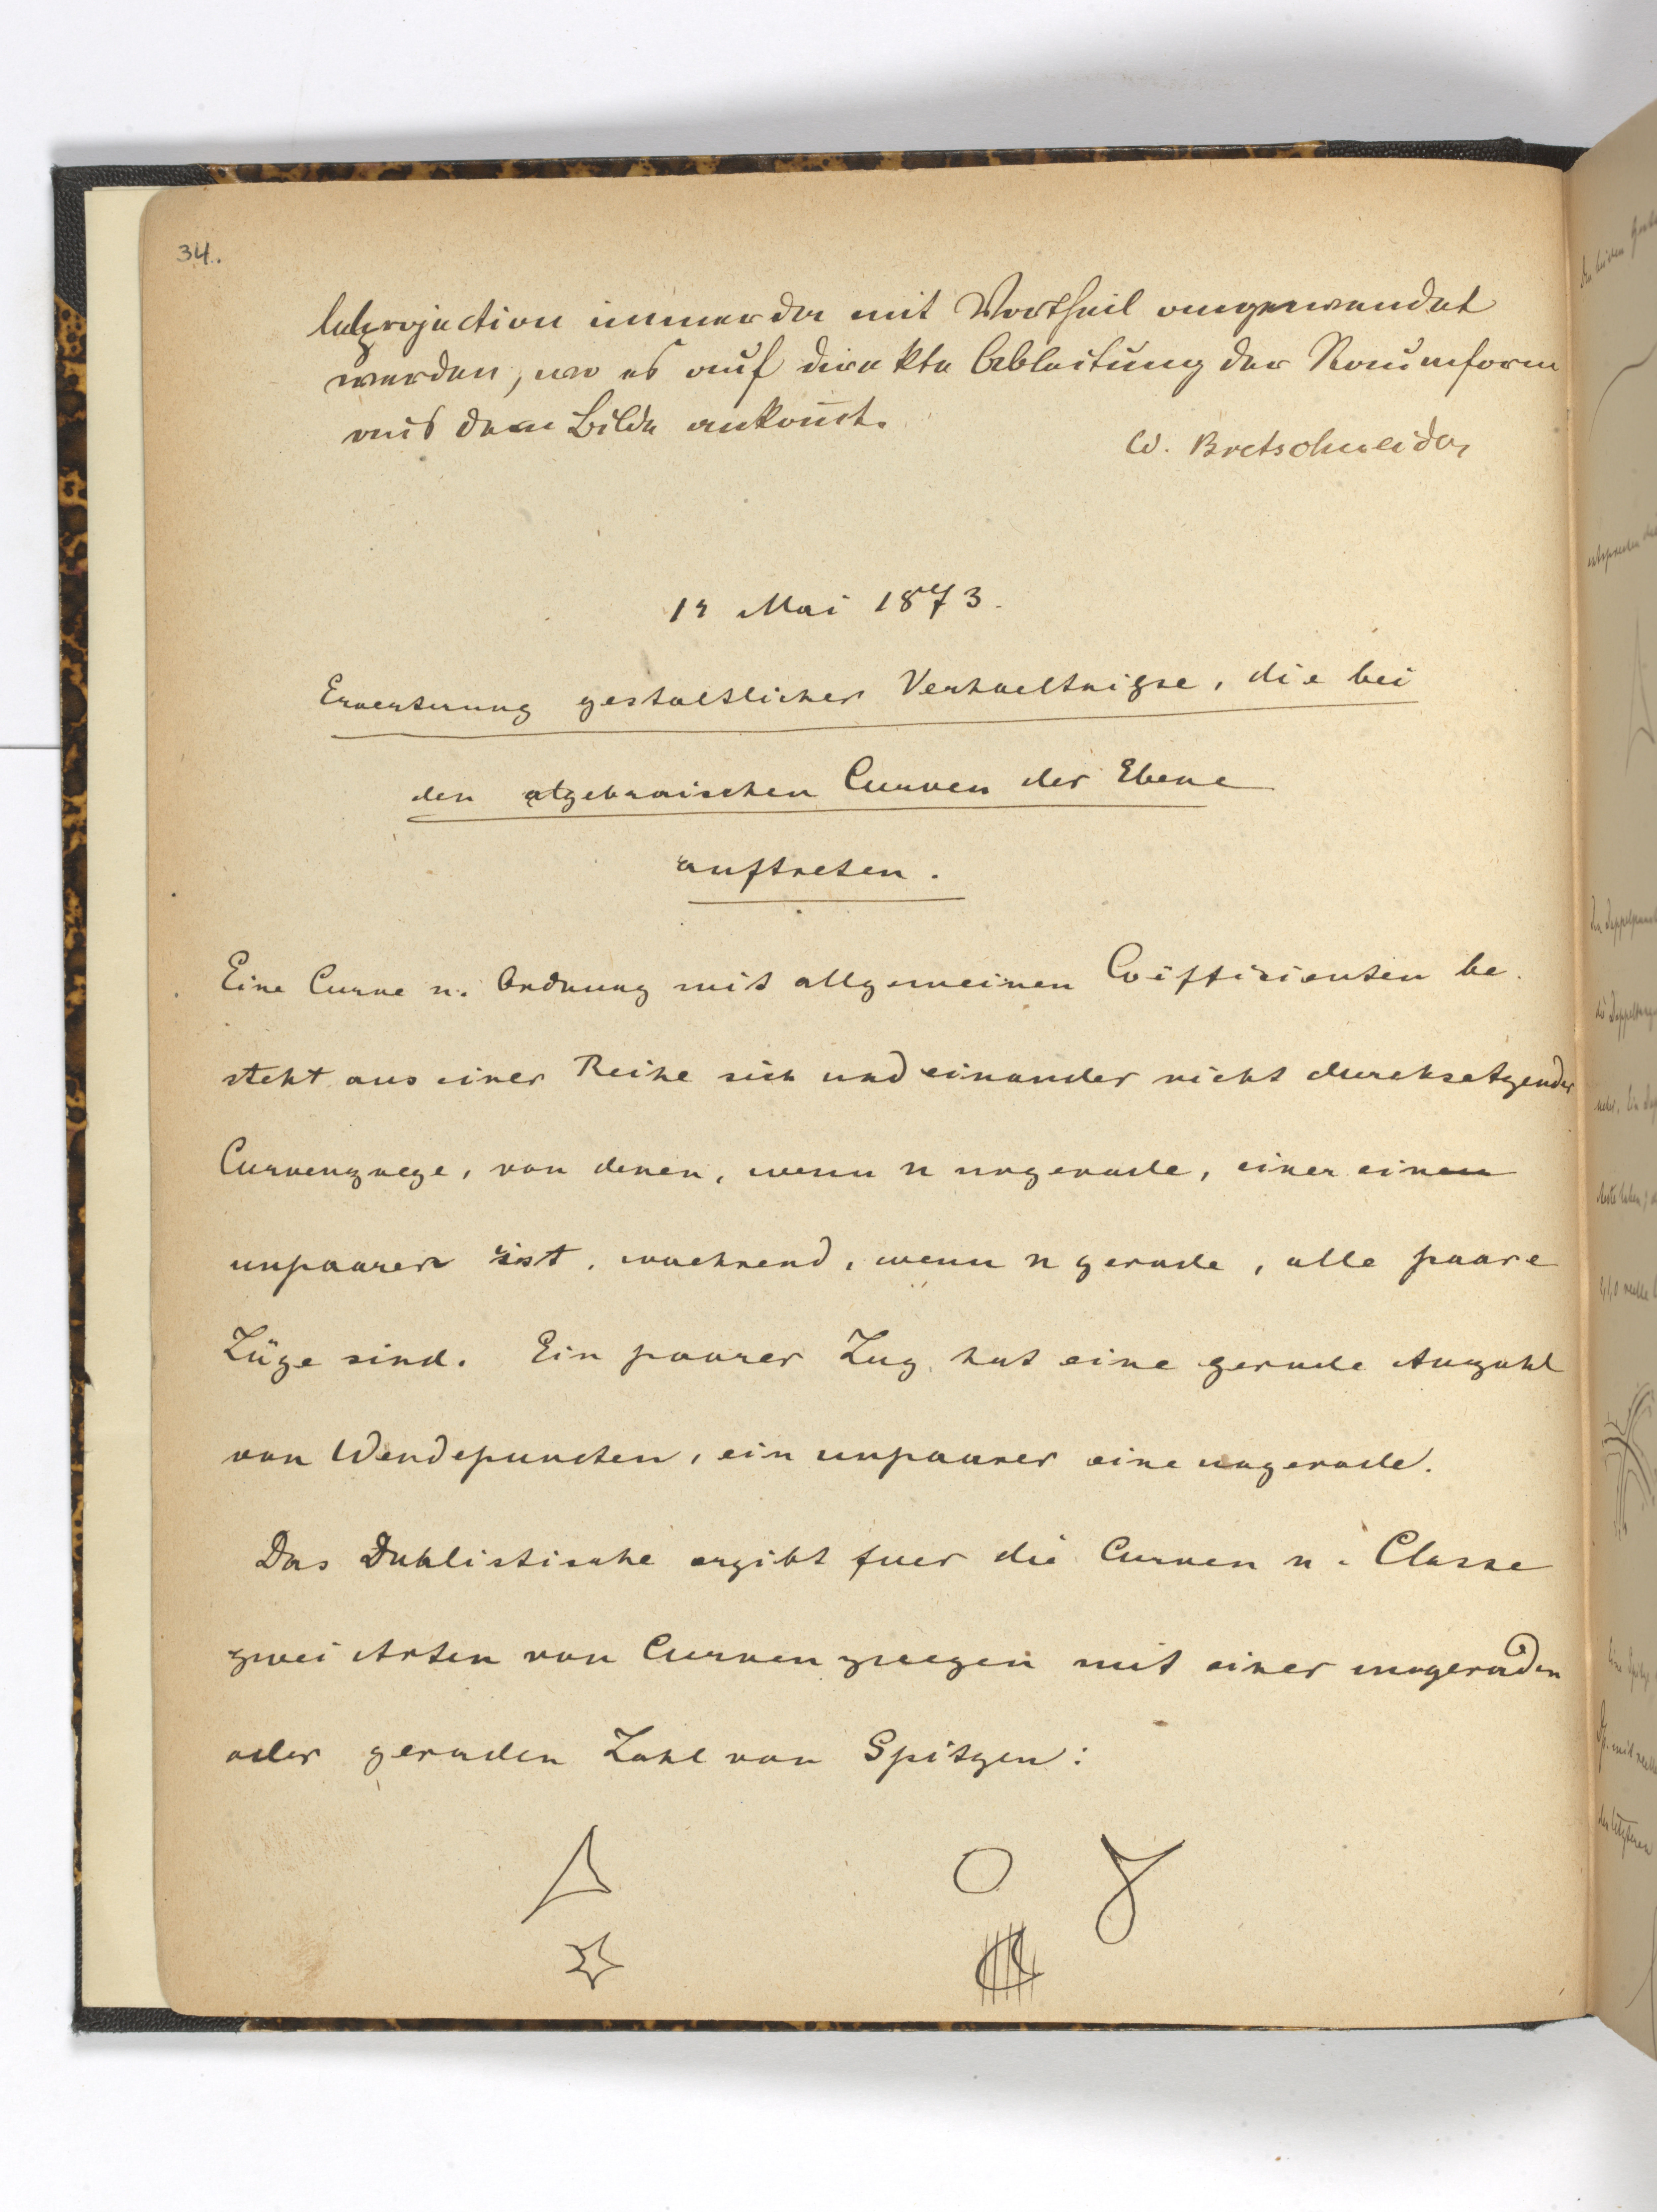 34.
projection immer da mit Vortheil angewendet
werden, wo es auf direkte Ableitung der Raumform
aus dem Bilde ankom̄t.
W. Bretschneider
Mai 1873.
Eroerterung gestaltlicher Verhaeltniße, die bei
den algebraischen Curven der Ebene
auftreten.
Eine Curve n. Ordnung mit allgemeinen Coiffizienten be-
steht aus einer Reihe sich und einander nicht durchsetzender
Curvenzuege, von denen, wenn n ungerade, einer einen
unpaarer ist, waehrend, wenn n gerade, alle paare
Züge sind. Ein paarer Zug hat eine gerade Anzahl
von Wendepuncten, ein unpaarer eine ungerade.
Das Dualistische ergibt fuer die Curven n. Classe
zwei Arten von Curvenzuegen mit einer ungeraden
oder geraden Zahl von Spitzen: